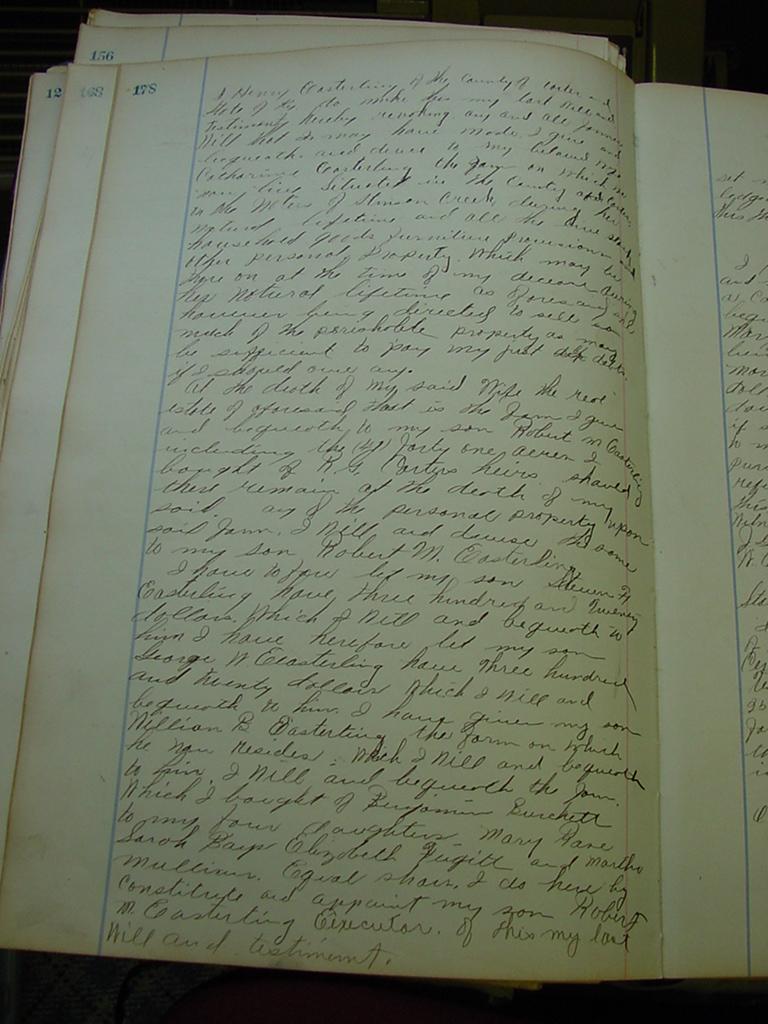 156
12
168
178
I Henry Easterling of the County of Carter and
State of Ky do make this my last Will and
Testimony hereby revoking any and all former
Will that I may have made. I give and
bequeath and devise to my beloved wife
Catharine Easterling the farm on which we
now live situated in the County of Carter
in the Waters of Stinson Creek, during her
natural lifetime and all the live stock
household goods furniture provisions and
other personal Property. Which may be
here on at the time of my decease during
her natural lifetime as aforesaid she
however being directed to sell so
much of the perishable property as may
be sufficient to pay my just debts
if I should owe any.
At the death of my said Wife the real
estate of aforesaid that is the farm I give
and bequeath to my son Robert M Easterling
including the (41) forty one acres I
bought of R. G. Carters heirs. should
there remain at the death of my
said any of the personal property upon
said farm. I Will and devise the same
to my son Robert M. Easterling
I have to fore let my son
Easterling have three hundred and twenty
dollars. Which I Will and bequeath to
him I have herefore let my son
George W Easterling have three hundred
and twenty dollars Which I Will and
bequeath to him. I have given my son
William B. Easterling the farm on which
he now resides. Which I Will and bequeath
to him. I Will and bequeath the farm.
Which I bought of Benjamin Burchett
to my four daughters Mary Jane
Sarah Bays Elizabeth Fugitt and Martha
Mullins. Equal share. I do here by
Constitute and appoint my son Robert
M. Easterling Executor. of this my last
Will and testiment.